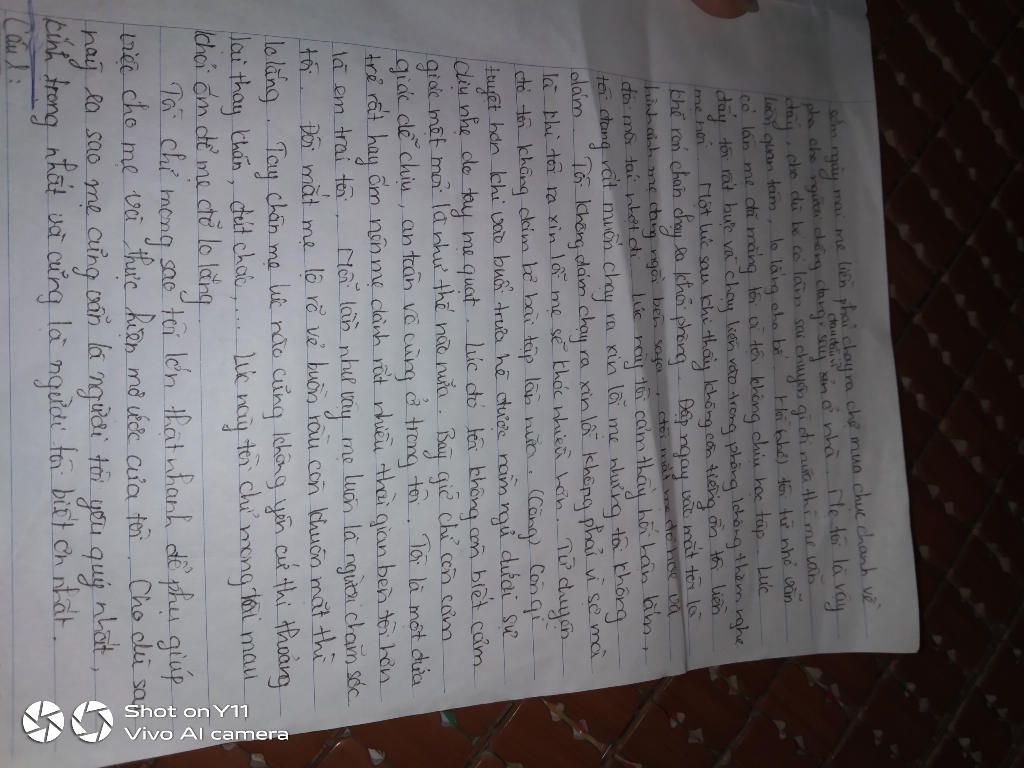 sớm ngày mai mẹ liền phải chạy ra chợ mua chục chanh về
pha cho người chồng đang say xỉn ở nhà. Mẹ tôi là vậy
đấy, cho dù bố có lăn sai chuyện gì đi nữa thì mẹ vẫn
luôn quan tâm, lo lắng cho bố. Hồi bé, tôi từ nhỏ vẫn
có lần mẹ đã mắng tôi vì tôi không chịu học tập. Lúc
đấy tôi rất bực và chạy luôn vào trong phòng không thèm nghe
mẹ nói. Một lúc sau khi thấy không còn tiếng ồn tôi liền
khẽ rón chân chạy ra khỏi phòng. Đập ngay vào mắt tôi là
hình ảnh mẹ đang ngồi trên, đôi mắt mẹ đỏ hoe và
đôi môi tái nhợt đi. Lúc này tôi cảm thấy hối hận lắm,
tôi đang rất muốn chạy ra xin lỗi mẹ nhưng tôi không
dám. Tôi không dám chạy ra xin lỗi không phải vì sợ mà
là khi tôi ra xin lỗi mẹ sẽ khóc nhiều hơn. Từ duyên
đó tôi không dám bỏ bài tập lần nữa. Càng còn gì
tuyệt hơn khi vào buổi trưa hè được nằm ngủ dưới sự
dịu nhẹ do tay mẹ quạt. Lúc đó tôi không còn biết cảm
giác mệt mỏi là như thế nào nữa. Bây giờ chỉ còn cảm
giác dễ chịu, an toàn vô cùng ở trong tôi. Tôi là một đứa
trẻ rất hay ốm nên mẹ dành rất nhiều thời gian bên tôi hơn
là em trai tôi. Mỗi lần như vậy mẹ luôn là người chăm sóc
tôi. Đôi mắt mẹ lộ rõ vẻ buồn rầu còn khuôn mặt thì
lo lắng. Tay chân mẹ lúc nào cũng không yên cứ thi thoảng
lại thay khăn, đút cháo,... Lúc này tôi chỉ mong tôi mau
khỏi ốm để mẹ đỡ lo lắng.
Tôi chỉ mong sao tôi lớn thật nhanh để phụ giúp
việc cho mẹ và thực hiện mơ ước của tôi. Cho dù sau
này ra sao mẹ cũng vẫn là người tôi yêu quý nhất,
kính trọng nhất và cũng là người tôi biết ơn nhất.
Câu 1:
Shot on Y11
Vivo AI camera